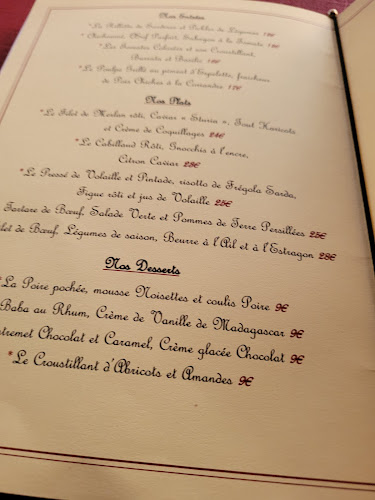 Nos Entrées
*La Rillette de Sardines et Pickles de Légumes 16€
* l'Œuf Parfait, Sabayon à la Tomate
*Les Tomates Colorées et son Croustillant,
Burrata et Basilic 16€
*Le Poulpe Grillé au piment d'Espelette, fraîcheur
de Pois Chiches à la Coriandre 17€
Nos Plats
*Le Filet de Merlan rôti, Caviar « Sturia », Tout Haricots
et Crème de Coquillages 24€
*Le Cabillaud Rôti, Gnocchis à l'encre,
Citron Caviar 28€
*Le Pressé de Volaille et Pintade, risotto de Frégola Sarda,
Figue rôti et jus de Volaille 25€
Tartare de Bœuf, Salade Verte et Pommes de Terre Persillées 25€
let de Bœuf, Légumes de saison, Beurre à l'Ail et à l'Estragon 28€
Nos Desserts
*La Poire pochée, mousse Noisettes et coulis Poire 9€
Baba au Rhum, Crème de Vanille de Madagascar 9€
stremet Chocolat et Caramel, Crème glacée Chocolat 9€
*Le Croustillant d'Abricots et Amandes 9€